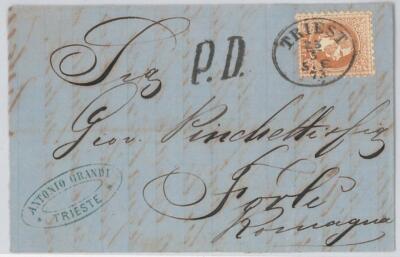 TRIEST
P.D.
Sig
Giov. Pinchetti & fig
Forlì
Romagna
ANTONIO GRANDI
TRIESTE